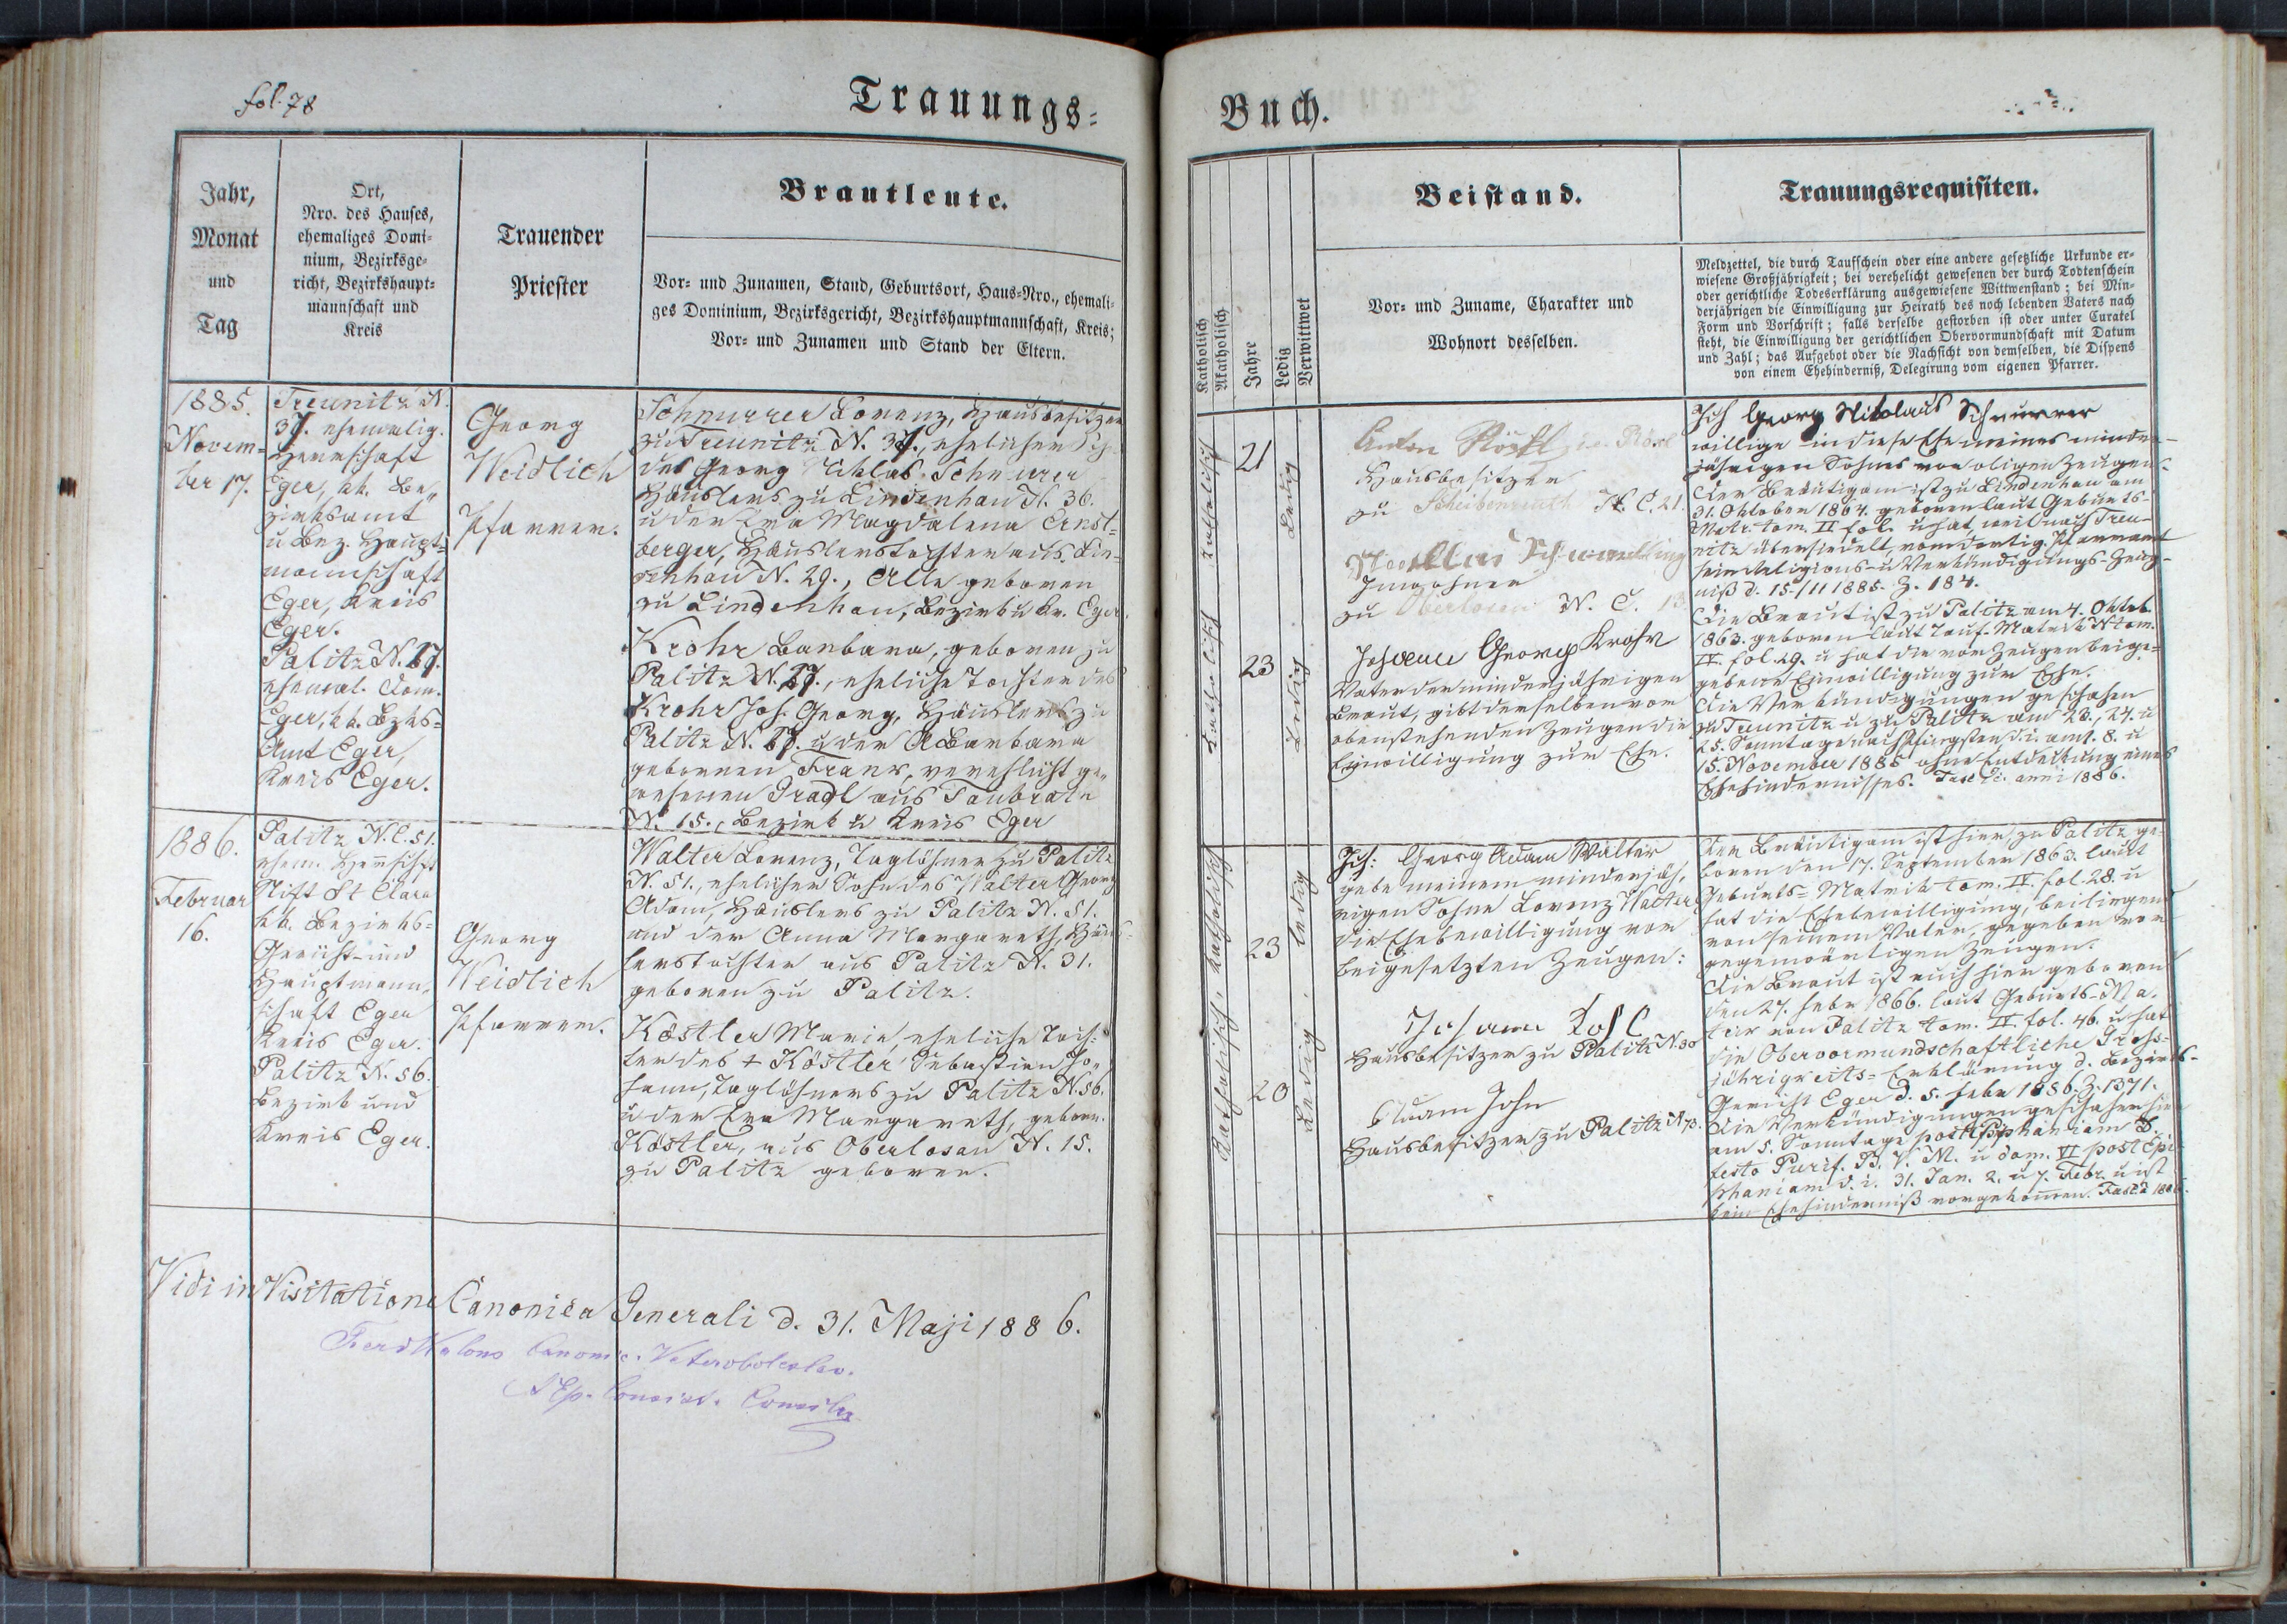 fol. 78
Trauungs=
Jahr,
Monat
und
Tag
Ort,
Nro. des Hauses,
ehemaliges Domi=
nium, Bezirksge=
richt, Bezirkshaupt=
mannschaft und
Kreis
Trauender
Priester
Brautleute.
Vor= und Zunamen, Stand, Geburtsort, Haus=Nro., ehemali=
ges Dominium, Bezirksgericht, Bezirkshauptmannschaft, Kreis;
Vor= und Zunamen und Stand der Eltern.
1885.
Novem=
ber 17.
Treunitz N.
37. ehemalig.
Herrschaft
Eger, kk. Be„
zirksamt
u Bez. Haupt=
mannschaft
Eger, Kreis
Eger.
Palitz N. 17.
ehemal. Dom.
Eger, kk. Bzks=
Amt Eger,
Kreis Eger.
Georg
Weidlich
Pfarrer.
Schnurrer Lorenz, Hausbesitzer
zu Treunitz N. 37., ehelicher
des Georg Niklas Schnurer
Häuslers zu Lindenhau N. 36.
u der Eva Magdalena Ernst=
berger, Häuslerstochter aus Lin=
denhau N. 29., Alle geboren
zu Lindenhau, Bezirk u Kr. Eger.
Krohr Barbara, geboren zu
Palitz N. 17., eheliche Tochter des
Krohr Joh. Georg, Häuslers zu
Palitz N. 17. u der A Barbara
gebornen Frank, verehlicht ge„
wesenen Gradl aus Taubrath
N. 15., Bezirk u Kreis Eger
1886.
Februar
16.
Palitz N. C. 51.
ehem. Herrschft
Stift St Clara
kk. Bezirks=
Gericht- und
Hauptmann„
schaft Eger
Kreis Eger.
Palitz N. 56.
Bezirk und
Kreis Eger.
Georg
Weidlich
Pfarrer.
Walter Lorenz, Taglöhner zu Palitz
N. 51., ehelicher Sohn des Walter Georg
Adam, Häuslers zu Palitz N. 51.
und der Anna Margareth, Häus=
lerstochter aus Palitz N. 31.
geboren zu Palitz.
Köstler Maria, eheliche Toch=
ter des + Köstler Sebastian Jo„
hann, Taglöhners zu Palitz N. 56.
u der Eva Margareth, geborn.
Köstler, aus Oberlosau N. 15.
zu Palitz geboren.
Vidi in Visitatione Canonica Generali d. 31. Maji 1886.
Canonic. Veteroboleslav.
Buch.
Katholisch
Akatholisch
Jahre
Ledig
Verwittwet
Beistand.
Vor= und Zuname, Charakter und
Wohnort desselben.
Trauungsrequisiten.
Meldzettel, die durch Taufschein oder eine andere gesetzliche Urkunde er=
wiesene Großjährigkeit; bei verehelicht gewesenen der durch Todtenschein
oder gerichtliche Todeserklärung ausgewiesene Wittwenstand; bei Min=
derjährigen die Einwilligung zur Heirath des noch lebenden Vaters nach
Form und Vorschrift; falls derselbe gestorben ist oder unter Curatel
steht, die Einwilligung der gerichtlichen Obervormundschaft mit Datum
und Zahl; das Aufgebot oder die Nachsicht von demselben, die Dispens
von einem Ehehinderniß, Delegirung vom eigenen Pfarrer.
Katholisch
21
Ledig
Katholisch
23
Ledig
Anton
Hausbesitzer
zu Scheibenreuth N. C. 21.
Inwohner
zu Oberlosau N. C. 13.
Johann Georg Krohr
Vater der minderjährigen
Braut, gibt derselben vor
obenstehenden Zeugen die
Einwilligung zur Ehe.
Ich Georg Nikolaus Schnurrer
willige in diese Ehe meines minder=
jährigen Sohnes vor obigen Zeugen.
Der Bräutigam ist zu Lindenhau am
31. Oktober 1864. geboren laut Geburts-
Matr. tom. II fol. u hat, weil nach Treu=
nitz übersiedelt, vom dortig. Pfarramt
sein Religions- u Verkündigungs-Zeug=
niß d. 15/11 1885. Z. 184.
Die Braut ist zu Palitz am 4. Oktob.
1863. geboren laut Tauf-Matrik tom.
IV. fol. 29. u hat die von Zeugen beige=
gebene Einwilligung zur Ehe.
Die Verkündigungen geschahen
zu Treunitz u zu Palitz am 23., 24. u
25. Sonntage nach Pfingsten d. i. am 1. 8. u
15. November 1885 ohne Entdeckung eines
Ehehindernisses. anni 1886.
Katholisch
23
ledig
Katholisch
20
Ledig
Ich: Georg Adam Walter
gebe meinem minderjäh„
rigen Sohne Lorenz Walter
die Ehebewilligung vor
beigesetzten Zeugen:
Johann
Hausbesitzer zu Palitz N. 30
Adam John
Hausbesitzer zu Palitz N 13.
Der Bräutigam ist hier, zu Palitz ge=
boren den 17. September 1863. laut
Geburts=Matrik tom. IV. fol. 28. u
hat die Ehebewilligung, beiliegend
von seinem Vater, gegeben vor
gegenwärtigen Zeugen.
Die Braut ist auch hier geboren
den 27. Febr 1866. laut Geburts-Ma„
trik von Palitz tom. IV. fol. 46. u hat
die Obervormundschaftliche Gross=
jährigkeits=Erklärung d. Bezirks-
Gericht Eger d. 5. Febr 1886. Z. 1371.
Die Verkündigungen geschahen hier
am 5. Sonntage post Epiphaniam
festo Purif. B. V. M. u dom. VI post Epi
phaniam d. i. 31. Jan. 2. u 7. Febr. u ist
kein Ehehinderniß vorgekommen.